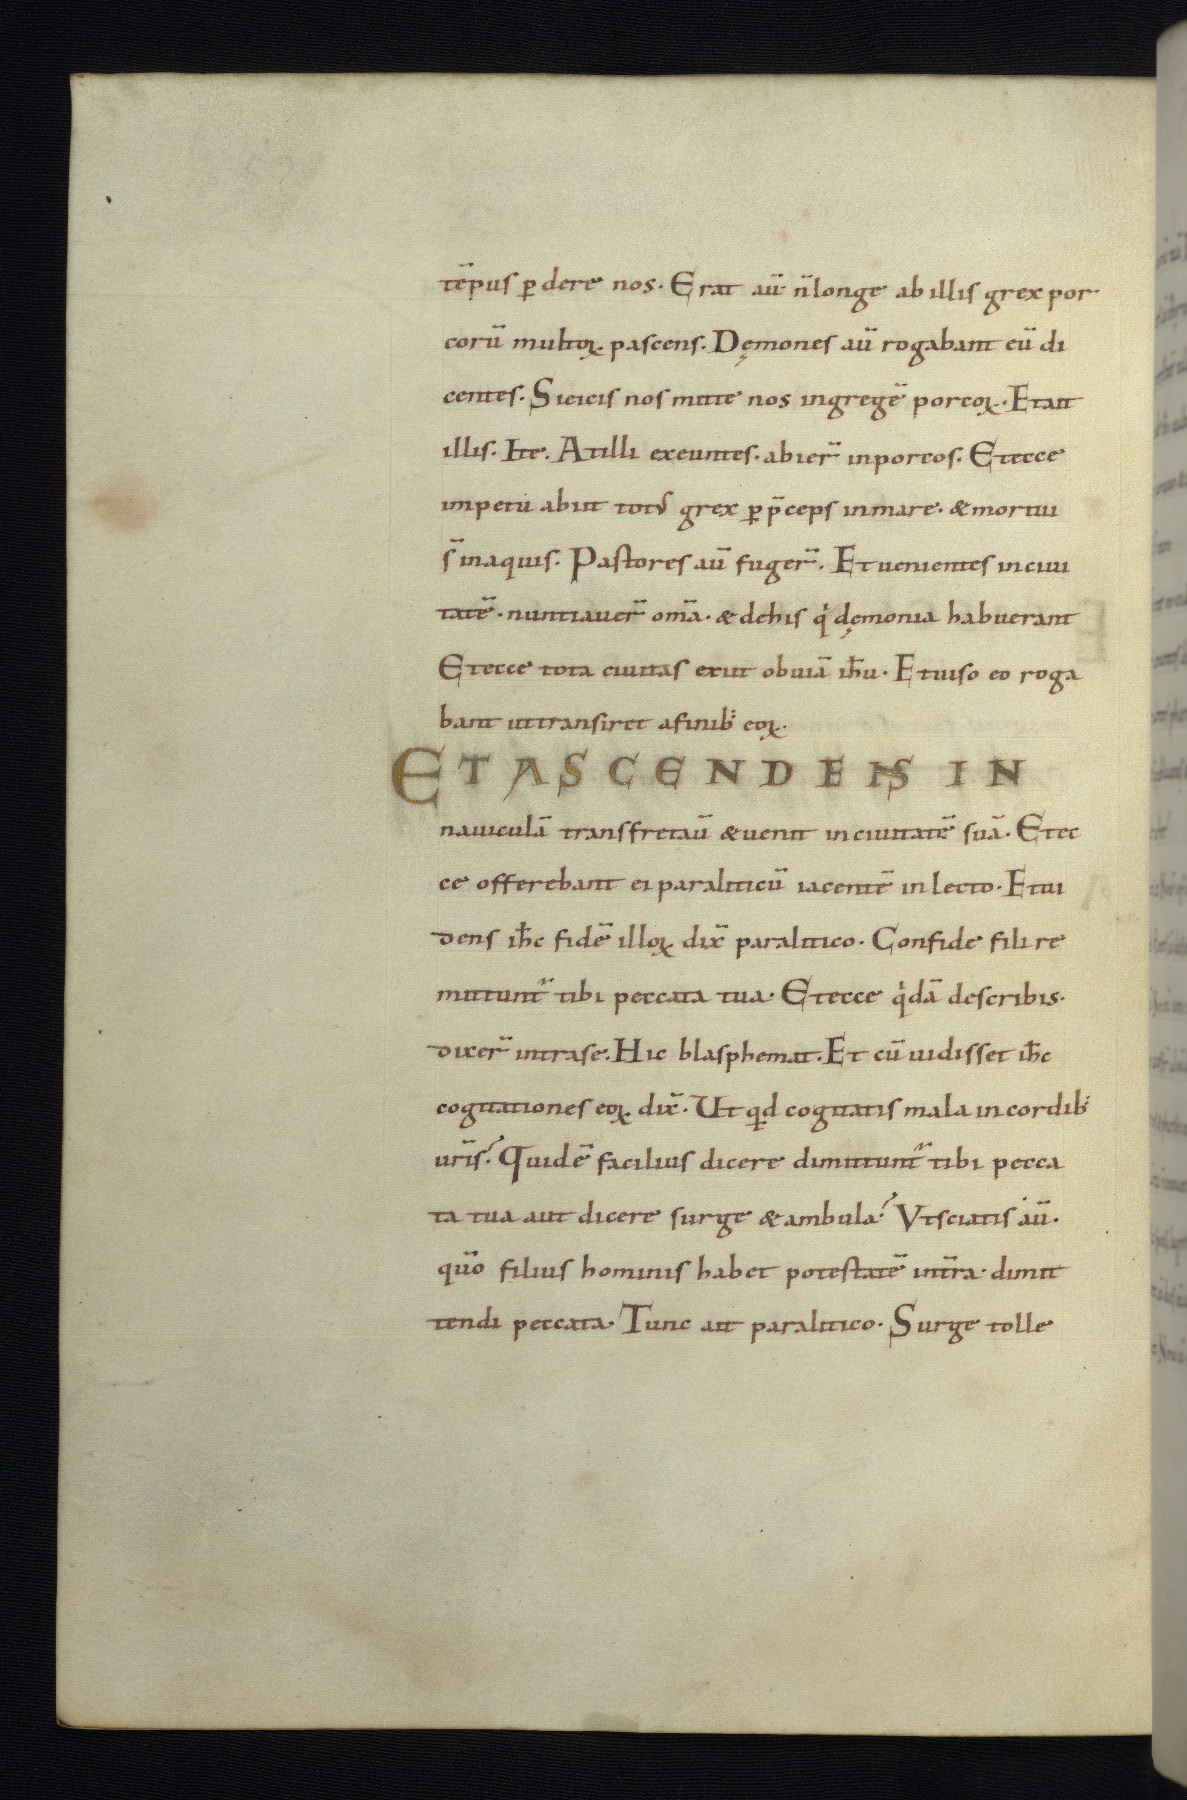 tē̄pus ꝑdere nos. Erat aū n̄ longe ab illis grex por
corū multoꝝ pascens. Dęmones aū rogabant eū di
centes. Si eicis nos mitte nos in gregē porcoꝝ. Et ait
illis. Ite. At illi exeuntes. abier̄ in porcos. Et ecce
impetu abiit totꝰ grex ꝑ p̄ceps in mare. & mortui
s̄ in aquis. Pastores aū fuger̄. Et uenientes in ciui
tatē. nuntiauer̄ om̄a. & de his qͥ dęmonia habuerant
Et ecce tota ciuitas exiit obuiā ih̄u. Et uiso eo roga
bant ut transiret a finib; eoꝝ.
ET ASCENDENS IN
nauiculā transfretaū & uenit in ciuitatē suā. Et ec
ce offerebant ei paraliticū iacentē in lecto. Et ui
dens ih̄c fidē illoꝝ dix̄ paralitico. Confide fili re
mittunt̄ tibi peccata tua. Et ecce qͥdā de scribis.
dixer̄ intra se. Hic blasphemat. Et cū uidisset ih̄c
cogitationes eoꝝ dix̄. Ut qͥd cogitatis mala in cordib;
ur̄is? Quid ē facilius dicere dimittunt̄ tibi pecca
ta tua aut dicere surge & ambula? Vt sciatis aū.
qūo filius hominis habet potestatē in t̄ra. dimit
tendi peccata. Tunc ait paralitico. Surge tolle